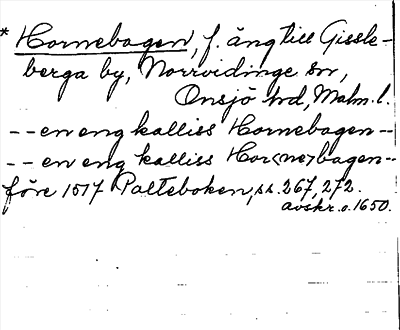 * Hornebagen, f. äng till Gissle-
berga by, Norrvidinge sn,
Onsjö hd, Malm. l.
-- en eng kalliss Hornebagen --
-- en eng kalliss Hor<ne>bagen --
före 1517 Palteboken, ss. 267, 272.
avskr. o. 1650.